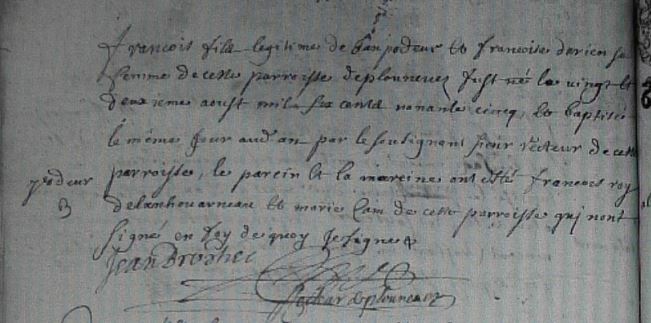 françois fils legitime de jean podeur et françoise da sa
femme de cette parroisse deplouneuez fust né le vingt et
deuxieme aoust mil six cents nonante cinq, et baptisé
le même jour aud an par le soutignant sieur recteur de cette
parroisse, le parein et la mareine ont esté françois roy
delanhouarneau et marie Cam de cette parroisse qui nont
signé en foy de quoy je signe
podeur
3
Jean
Recteur deplouneuez